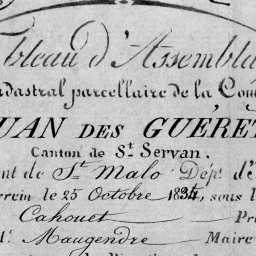 Tableau d'Assembla
adastral parcellaire de la Com
UAN DES GUÉRET
Canton de St. Servan.
nt de St. Malo Dépt. d'I
rrein le 25 Octobre 1834, sous l
Cahouet Pr
M. Maugendre Maire